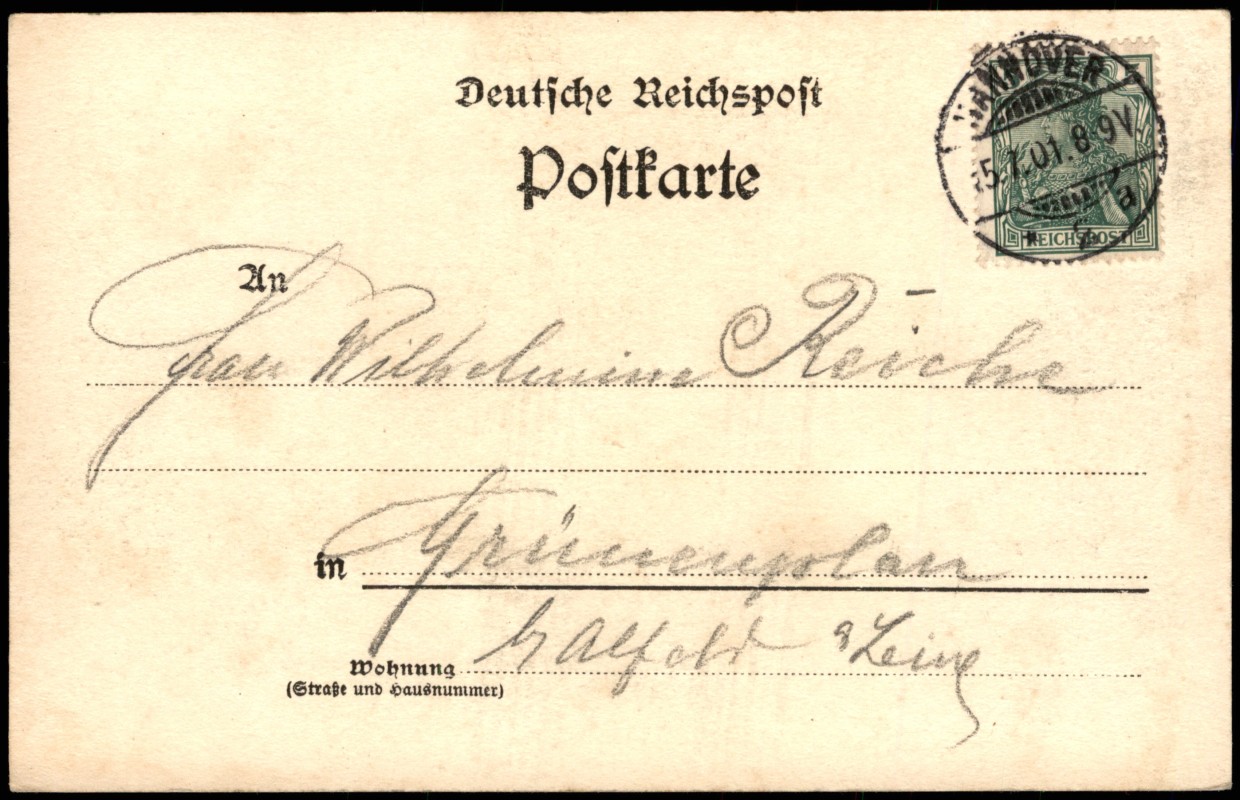 Deutsche Reichspost
Postkarte
HANNOVER
5.7.01. 8-9V
a
REICHSPOST
An
Frau Wilhelmine Reiche
in Grünenplan
b/ Alfeld a Leine
Wohnung
(Straße und Hausnummer)